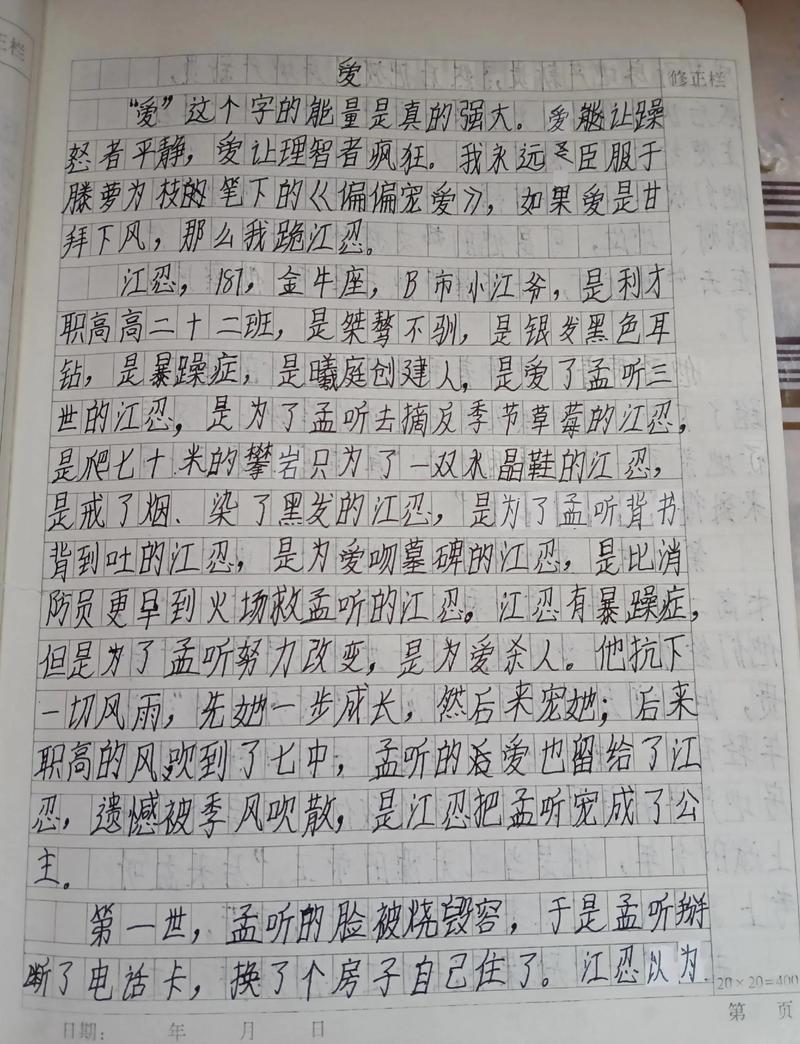 爱
修正栏
“爱”这个字的能量是真的强大。爱能让躁
怒者平静，爱让理智者疯狂。我永远臣服于
藤萝为枝的笔下的《偏偏宠爱》，如果爱是甘
拜下风，那么我跪江忍。
江忍，187，金牛座，B市小江爷，是利才
职高高二十二班，是桀骜不驯，是银发黑色耳
钻，是暴躁症，是曦庭创建人，是爱了孟听三
世的江忍，是为了孟听去摘反季节草莓的江忍，
是爬七十米的攀岩只为了一双水晶鞋的江忍，
是戒了烟、染了黑发的江忍，是为了孟听背书
背到吐的江忍，是为爱吻墓碑的江忍，是比消
防员更早到火场救孟听的江忍。江忍有暴躁症，
但是为了孟听努力改变，是为爱杀人。他抗下
一切风雨，先她一步成长，然后来宠她；后来
职高的风吹到了七中，孟听的爱也留给了江
忍，遗憾被季风吹散，是江忍把孟听宠成了公
主。
第一世，孟听的脸被烧毁容，于是孟听掰
断了电话卡，换了个房子自己住了。江忍以为
20×20=400
第 页
日期： 年 月 日